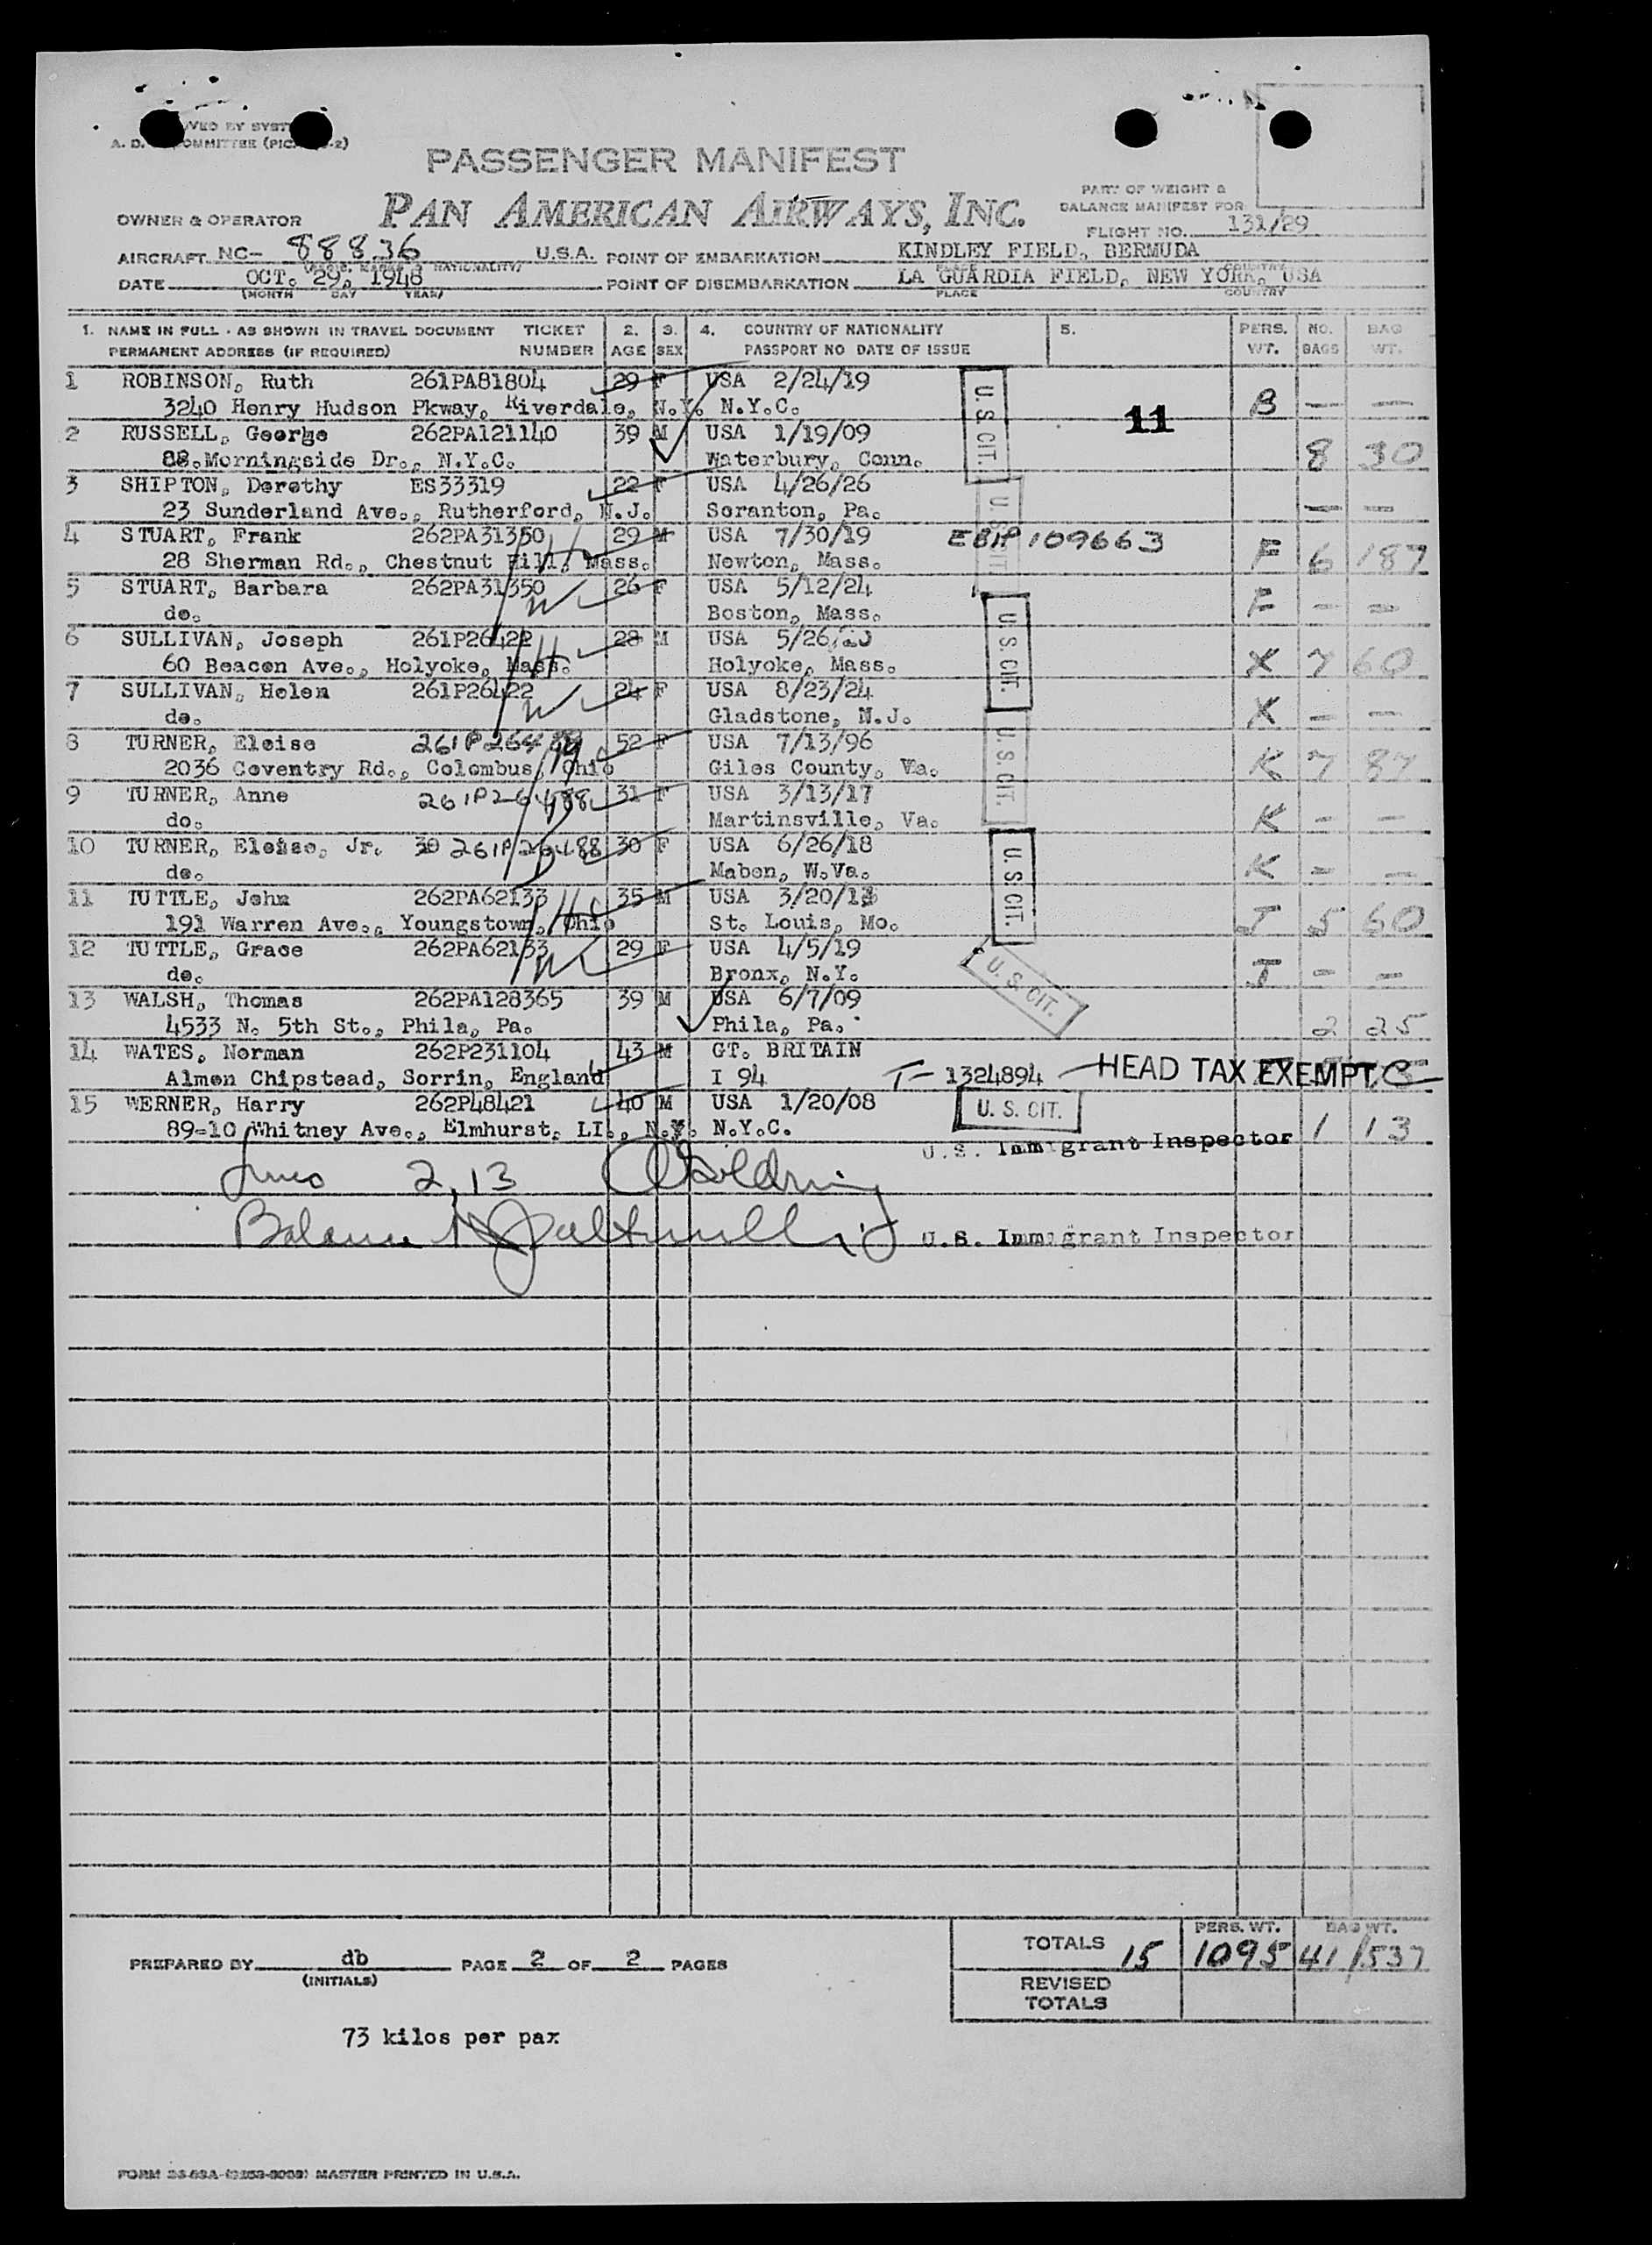 PASSENGER MANIFEST
PAN AMERICAN AIRWAYS, INC.
PART OF WEIGHT &
BALANCE MANIFEST FOR
OWNER & OPERATOR
FLIGHT NO. 131/29
AIRCRAFT NC- 88836 U.S.A. POINT OF EMBARKATION KINDLEY FIELD, BERMUDA
DATE OCT. 29, 1948 POINT OF DISEMBARKATION LA GUARDIA FIELD, NEW YORK, USA
(MONTH DAY YEAR) PLACE COUNTRY
1. NAME IN FULL - AS SHOWN IN TRAVEL DOCUMENT TICKET 2. 3. 4. COUNTRY OF NATIONALITY 5. PERS. NO. BAG
PERMANENT ADDRESS (IF REQUIRED) NUMBER AGE SEX PASSPORT NO DATE OF ISSUE WT. BAGS WT.
1 ROBINSON, Ruth 261PA81804 29 F USA 2/24/19 U.S. CIT. 11
3240 Henry Hudson Pkway, Riverdale, N.Y. N.Y.C. B — —
2 RUSSELL, George 262PA121140 39 M USA 1/19/09
88 Morningside Dr., N.Y.C. Waterbury, Conn. 8 30
3 SHIPTON, Dorothy ES33319 22 F USA 4/26/26 U.S. CIT.
23 Sunderland Ave., Rutherford, N.J. Scranton, Pa. — —
4 STUART, Frank 262PA31350 29 M USA 7/30/19 109663
28 Sherman Rd., Chestnut Hill, Mass. Newton, Mass. F 6 187
5 STUART, Barbara 262PA31350 26 F USA 5/12/24 U.S. CIT.
do. Boston, Mass. F - -
6 SULLIVAN, Joseph 261P26422 28 M USA 5/26/20
60 Beacon Ave., Holyoke, Mass. Holyoke, Mass. X 7 60
7 SULLIVAN, Helen 261P26422 24 F USA 8/23/24 U.S. CIT.
do. Gladstone, N.J. X - -
8 TURNER, Eloise 52 F USA 7/13/96
2036 Coventry Rd., Colombus, Ohio Giles County, Va. K 7 87
9 TURNER, Anne 261P26488 31 F USA 3/13/17
do. Martinsville, Va. K - -
10 TURNER, Eloise, Jr. 30 261P26488 30 F USA 6/26/18 U.S. CIT.
do. Maben, W.Va. K - -
11 TUTTLE, John 262PA62133 35 M USA 3/20/13
191 Warren Ave., Youngstown, Ohio St. Louis, Mo. J 5 60
12 TUTTLE, Grace 262PA62133 29 F USA 4/5/19 U.S. CIT.
do. Bronx, N.Y. J - -
13 WALSH, Thomas 262PA128365 39 M USA 6/7/09
4533 N. 5th St., Phila, Pa. Phila, Pa. 2 25
14 WATES, Norman 262P231104 43 M GT. BRITAIN
Almon Chipstead, Sorrin, England I 94 T- 1324894 — HEAD TAX EXEMPT
15 WERNER, Harry 262P48421 40 M USA 1/20/08 U. S. CIT.
89-10 Whitney Ave., Elmhurst, LI., N.Y. N.Y.C. 1 13
U.S. Immigrant Inspector
Lines 2,13
Balance U.S. Immigrant Inspector
PERS. WT. BAG WT.
TOTALS 15 1095 41/537
PREPARED BY db PAGE 2 OF 2 PAGES
(INITIALS)
REVISED
TOTALS
73 kilos per pax
MASTER PRINTED IN U.S.A.